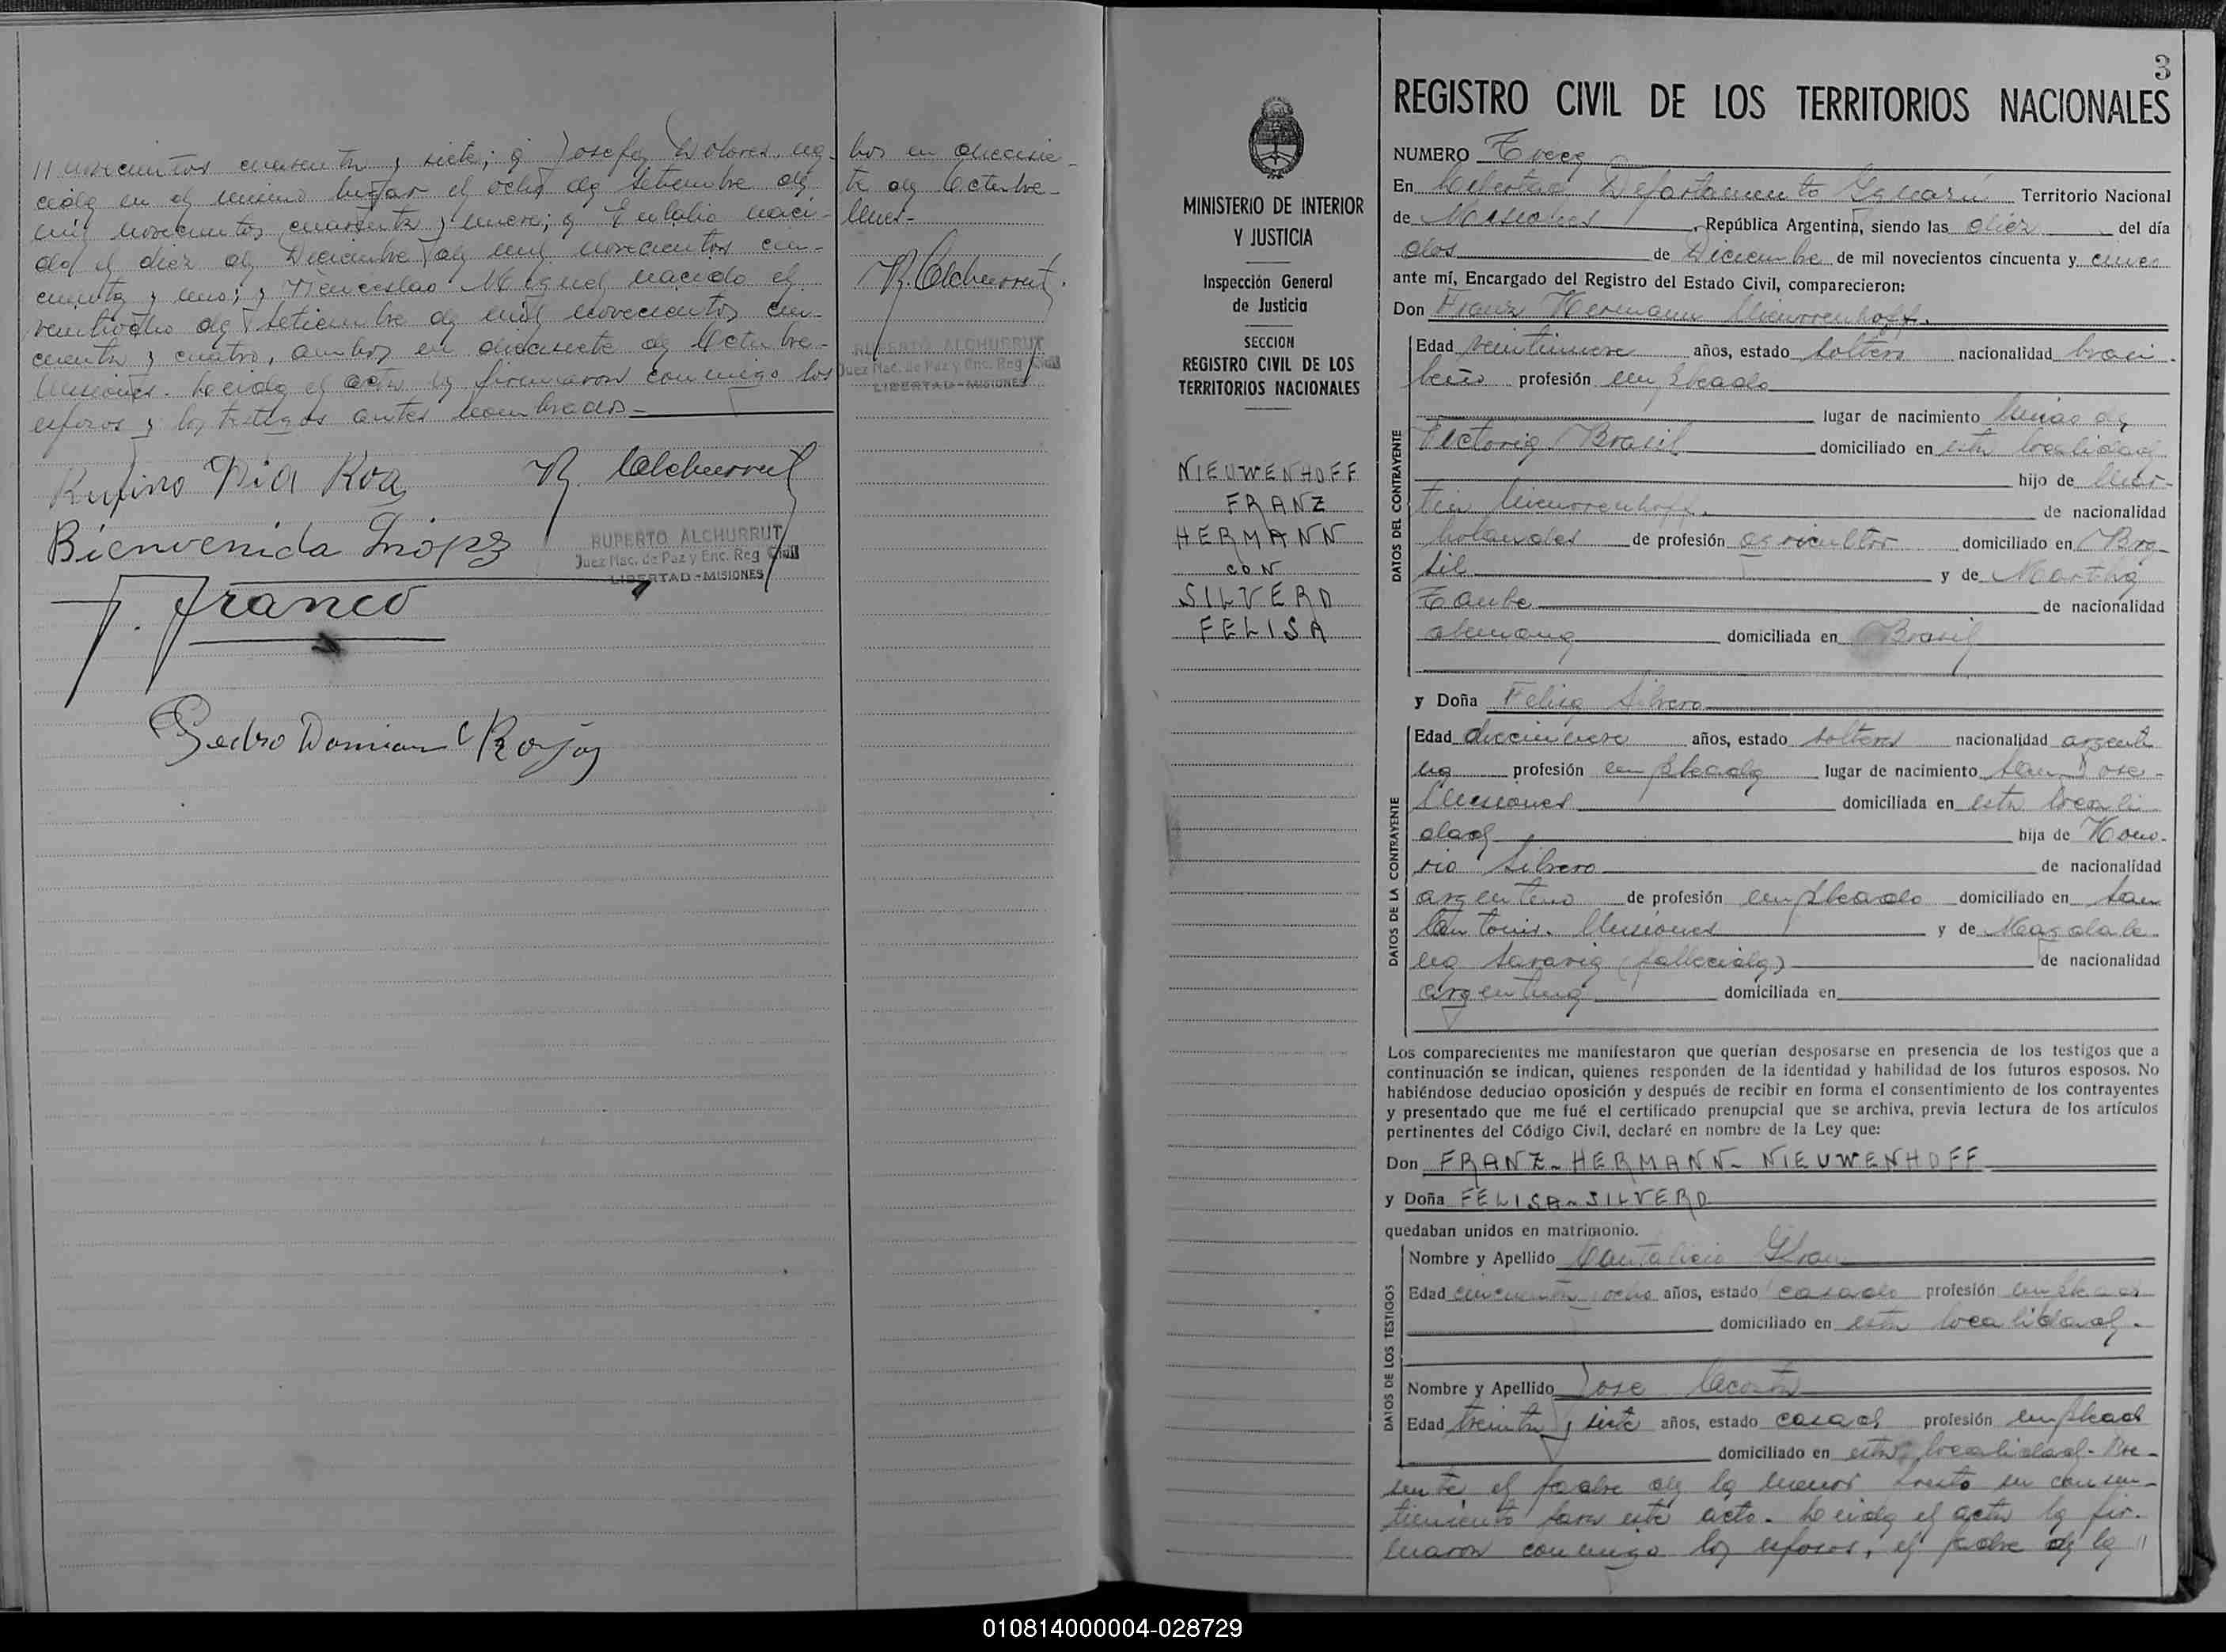 // novecientos cuarenta y siete; a Josefa Dolores, na-
cida en el mismo lugar el ocho de Setiembre de
mil novecientos cuarenta y nueve; a Eulalio naci-
do el diez de Diciembre de mil novecientos cin-
cuenta y uno; y Wenceslao Miguel nacido el
veintiocho de setiembre de mil novecientos cin-
cuenta y cuatro, ambos en diecisiete de Octubre-
Misiones. Leida el acta la firmaron conmigo los
esposos y los testigos antes nombrados-
bos en diecisie-
te de Octubre-
Mnes-
R. Alchurrut
RUPERTO ALCHURRUT
Juez Nac. de Paz y Enc. Reg Civil
LIBERTAD-MISIONES
Rufino Roa
R. Alchurrut
Bienvenida
RUPERTO ALCHURRUT
Juez Nac. de Paz y Enc. Reg Civil
LIBERTAD-MISIONES
F. Franco
Pedro Damian Rojas
MINISTERIO DE INTERIOR
Y JUSTICIA
Inspección General
de Justicia
SECCION
REGISTRO CIVIL DE LOS
TERRITORIOS NACIONALES
NIEUWENHOFF
FRANZ
HERMANN
CON
SILVERO
FELISA
3
REGISTRO CIVIL DE LOS TERRITORIOS NACIONALES
NUMERO Trece
En Libertad Departamento Iguazú Territorio Nacional
de Misiones, República Argentina, siendo las diez del día
dos de Diciembre de mil novecientos cincuenta y cinco
ante mí, Encargado del Registro del Estado Civil, comparecieron:
Don Franz Hermann Nieuwenhoff.
DATOS DEL CONTRAYENTE
Edad veintinueve años, estado soltero nacionalidad brasi-
leño profesión empleado
lugar de nacimiento de
Victoria. Brasil domiciliado en esta localidad
hijo de Mar-
tin Nieuwenhoff. de nacionalidad
holandes de profesión agricultor domiciliado en Bra-
sil y de Martha
Taube de nacionalidad
alemana domiciliada en Brasil
y Doña Felisa Silvero
DATOS DE LA CONTRAYENTE
Edad diecinueve años, estado soltera nacionalidad argenti
na profesión empleada lugar de nacimiento San Jose-
Misiones domiciliada en esta locali
dad hija de Hono-
rio Silvero de nacionalidad
argentino de profesión empleado domiciliado en San
Antonio. Misiones y de Magdale-
na (fallecida) de nacionalidad
argentina domiciliada en
Los comparecientes me manifestaron que querían desposarse en presencia de los testigos que a
continuación se indican, quienes responden de la identidad y habilidad de los futuros esposos. No
habiéndose deducido oposición y después de recibir en forma el consentimiento de los contrayentes
y presentado que me fué el certificado prenupcial que se archiva, previa lectura de los artículos
pertinentes del Código Civil, declaré en nombre de la Ley que:
Don FRANZ-HERMANN-NIEUWENHOFF
y Doña FELISA-SILVERO
quedaban unidos en matrimonio.
DATOS DE LOS TESTIGOS
Nombre y Apellido Cantalicio
Edad ocho años, estado casado profesión empleado
domiciliado en esta localidad.
Nombre y Apellido Jose Acosta
Edad treinta y siete años, estado casado profesión empleado
domiciliado en esta localidad- Pre-
sente el padre de la menor presto su consen-
timiento para este acto. Leida el acta la fir-
maron conmigo los esposos, el padre de la //
010814000004-028729